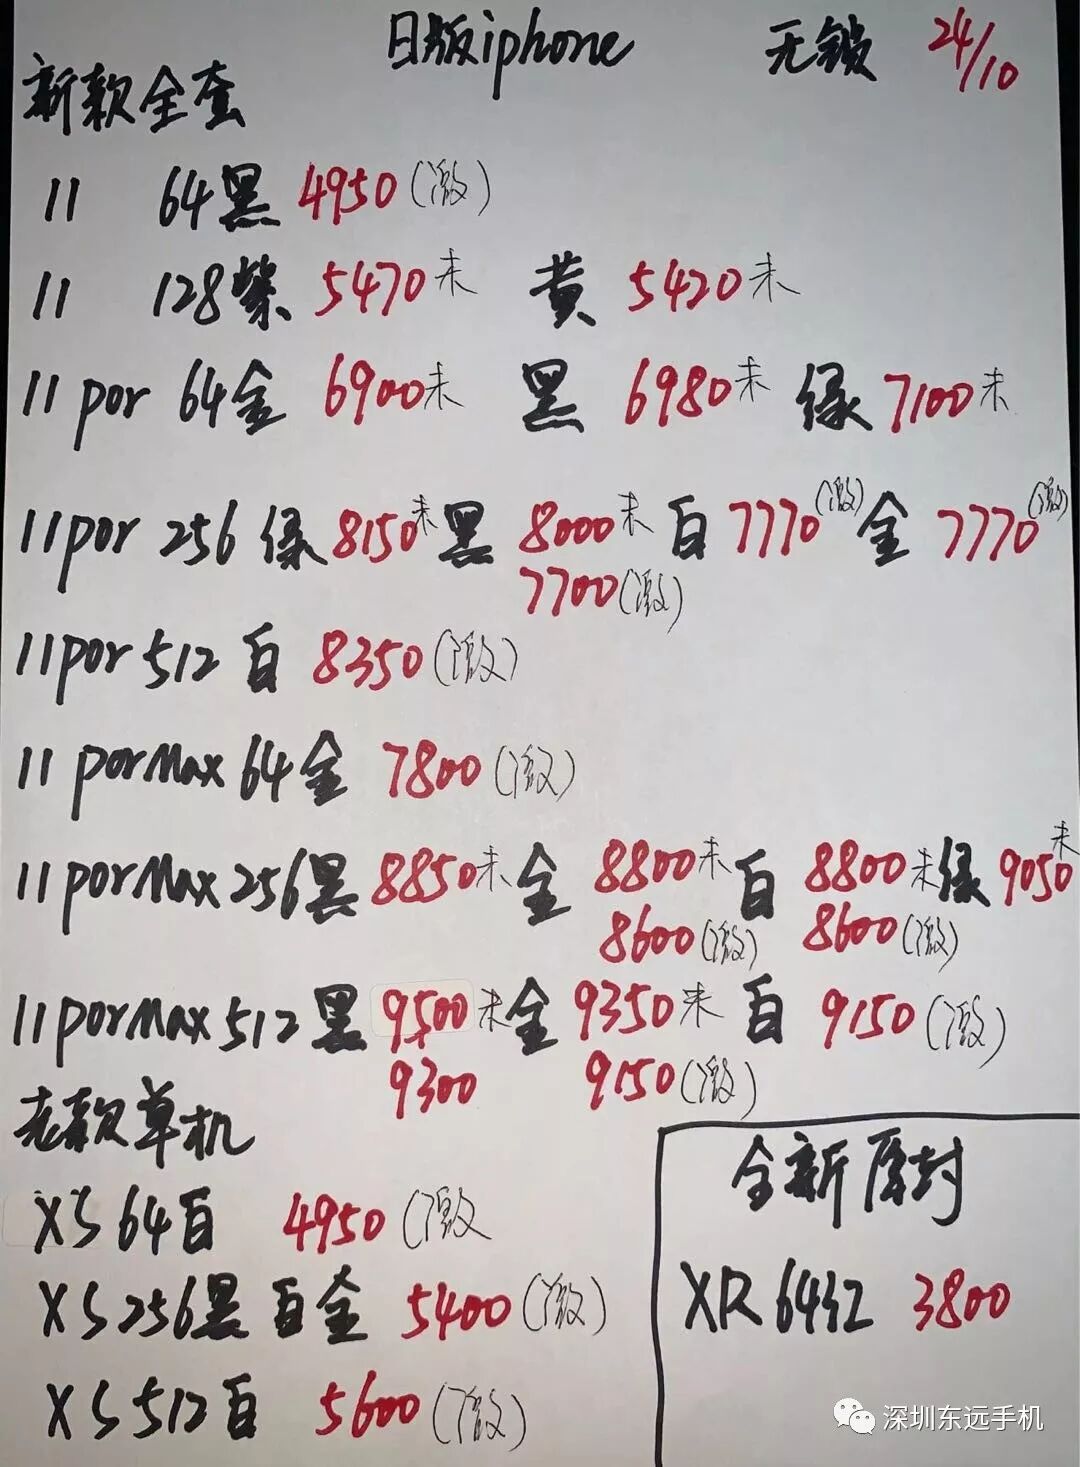 日版iphone 无锁 24/10
新款全套
11 64黑 4950(激)
11 128紫 5470未 黄 5420未
11 por 64金 6900未 黑 6980未 绿 7100未
11por 256 绿 8150未 黑 8000未 白 7770(激) 金 7770(激)
7700(激)
11por 512 白 8350(激)
11 porMax 64金 7800(激)
11porMax 256黑 8850未 金 8800未 白 8800未 绿 9050未
8600(激) 8600(激)
11porMax 512黑 9500未 金 9350未 白 9150(激)
9300 9150(激)
老款单机
XS 64白 4950(激
XS 256黑 白 金 5400(激)
XS 512白 5600(激)
全新原封
XR 64红 3800
深圳东远手机